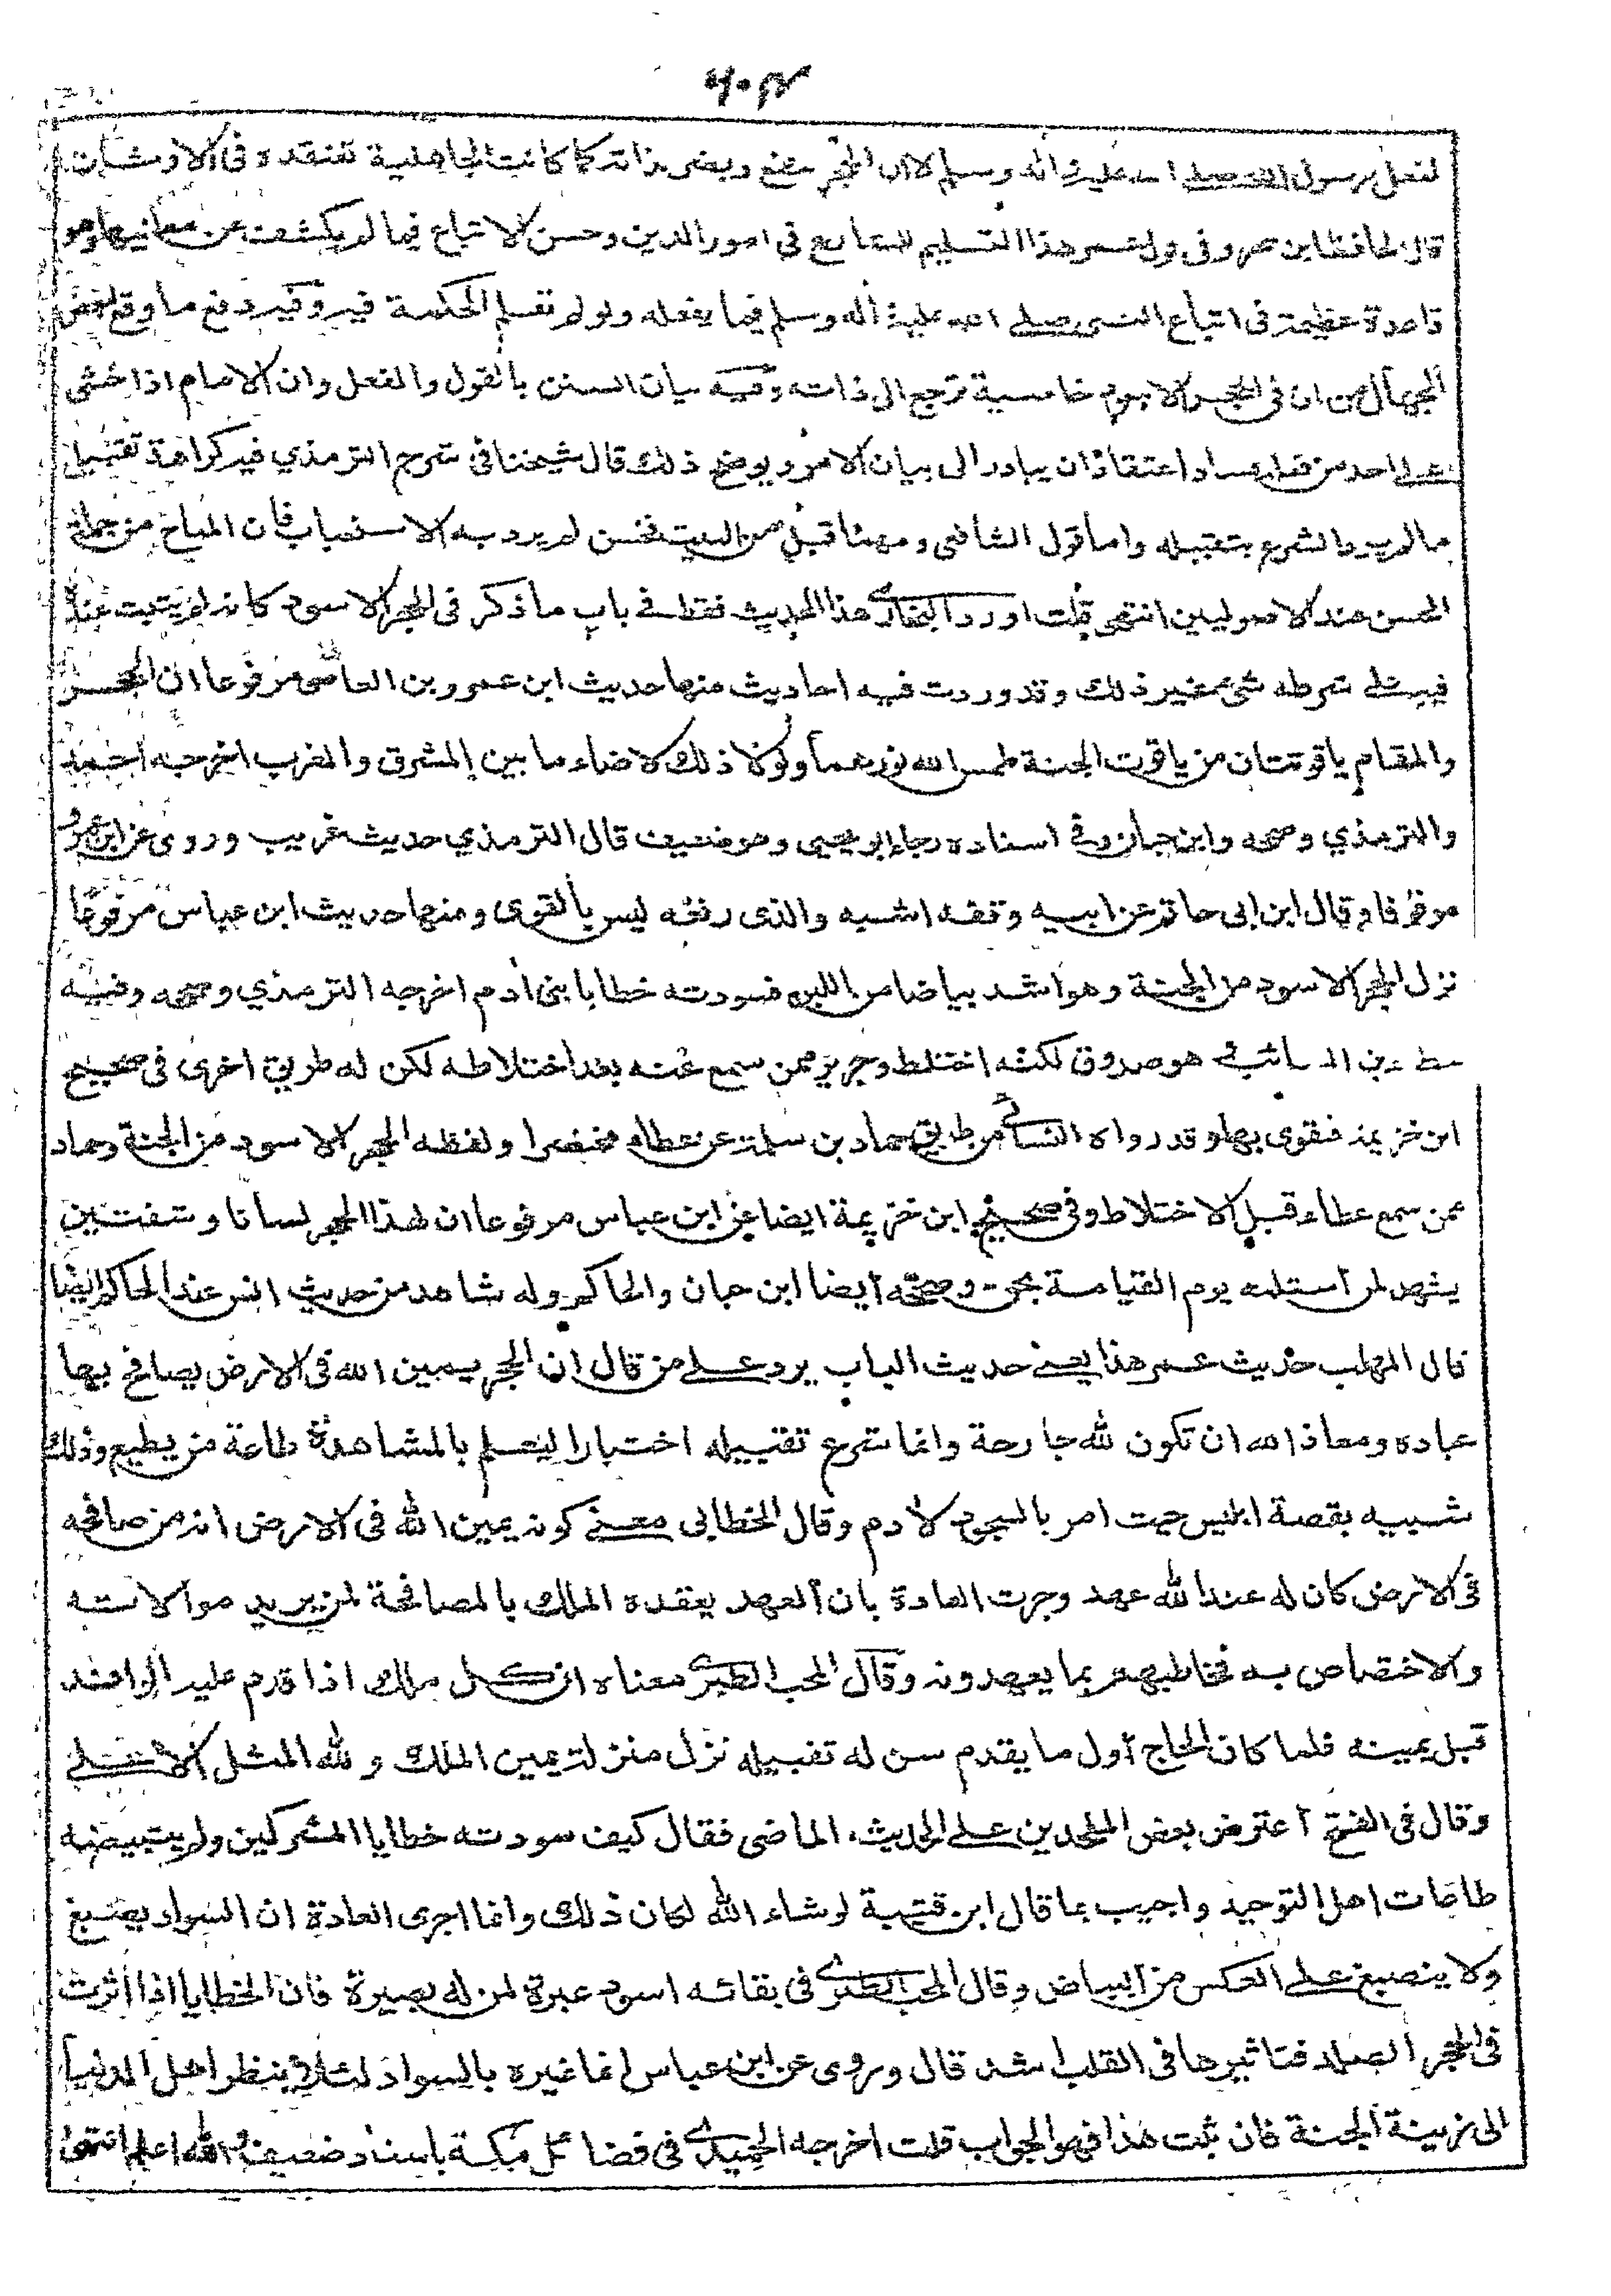 ٢٠٤
لفعل رسول الله صلى الله عليه وآله وسلم لا ان الحجر ينفع ويضر بذاته كما كانت الجاهلية تعتقده في الاوثان
قال الحافظ ابن حجر وفي قول عمر هذا التسليم للشارع في امور الدين وحسن الاتباع فيما لم يكشف عن معانيها وهو
قاعدة عظيمة في اتباع النبي صلى الله عليه وآله وسلم فيما يفعله ولو لم تعلم الحكمة فيه وفيه دفع ما وقع لبعض
الجهال من ان في الحجر الاسود خاصية ترجع الى ذاته وفيه بيان السنن بالقول والفعل وان الامام اذا خشي
على احد من فعله فساد اعتقاد ان يبادر الى بيان الامر ويوضح ذلك قال شيخنا في شرح الترمذي فيه كراهة تقبيل
ما لم يرد الشرع بتقبيله واما قول الشافعي ومهما قبل من البيت فحسن لم يرد به الاستحباب فان المباح من جملة
الحسن عند الاصوليين انتهى قلت اورد البخاري هذا الحديث فقط في باب ما ذكر في الحجر الاسود كانه لم يثبت عنده
فيه على شرطه شيء غير ذلك وقد وردت فيه احاديث منها حديث ابن عمرو بن العاص مرفوعا ان الحجر
والمقام ياقوتتان من ياقوت الجنة طمس الله نورهما ولولا ذلك لاضاء ما بين المشرق والمغرب اخرجه احمد
والترمذي وصححه وابن حبان وفي اسناده رجاء ابو يحيى وهو ضعيف قال الترمذي حديث غريب وروى عن ابن عمرو
موقوفا وقال ابن ابي حاتم عن ابيه وقفه اشبه والذي رفعه ليس بالقوي ومنها حديث ابن عباس مرفوعا
نزل الحجر الاسود من الجنة وهو اشد بياضا من اللبن فسودته خطايا بني آدم اخرجه الترمذي وصححه وفيه
عطاء بن السائب هو صدوق لكنه اختلط وجرير ممن سمع عنه بعد اختلاطه لكن له طريق اخرى في صحيح
ابن خزيمة فتقوى بها وقد رواه النسائي من طريق حماد بن سلمة عن عطاء مختصرا ولفظه الحجر الاسود من الجنة وحماد
ممن سمع عطاء قبل الاختلاط وفي صحيح ابن خزيمة ايضا عن ابن عباس مرفوعا ان لهذا الحجر لسانا وشفتين
يشهد لمن استلمه يوم القيامة بحق وصححه ايضا ابن حبان والحاكم وله شاهد من حديث انس عند الحاكم ايضا
قال المهلب حديث عمر هذا يعني حديث الباب يرد على من قال ان الحجر يمين الله في الارض يصافح بها
عباده ومعاذ الله ان تكون لله جارحة وانما شرع تقبيله اختبارا ليعلم بالمشاهدة طاعة من يطيع وذلك
شبيه بقصة ابليس حيث امر بالسجود لآدم وقال الخطابي معنى كونه يمين الله في الارض انه من صافحه
في الارض كان له عند الله عهد وجرت العادة بان العهد يعقده الملك بالمصافحة لمن يريد موالاته
والاختصاص به فخاطبهم بما يعهدونه وقال المحب الطبري معناه ان كل ملك اذا قدم عليه الوافد
قبل يمينه فلما كان الحاج اول ما يقدم سن له تقبيله نزل منزلة يمين الملك ولله المثل الاعلى
وقال في الفتح اعترض بعض الملحدين على الحديث الماضي فقال كيف سودته خطايا المشركين ولم يتبيضه
طاعات اهل التوحيد واجيب بما قال ابن قتيبة لو شاء الله لكان ذلك وانما اجرى العادة ان السواد يصبغ
ولا ينصبغ على العكس من البياض وقال المحب الطبري في بقائه اسود عبرة لمن له بصيرة فان الخطايا اذا اثرت
في الحجر الصلد فتاثيرها في القلب اشد قال وروى عن ابن عباس انما غيره بالسواد لئلا ينظر اهل الدنيا
الى زينة الجنة فان ثبت هذا فهو الجواب قلت اخرجه الحميدي في فضائل مكة باسناد ضعيف والله اعلم انتهى